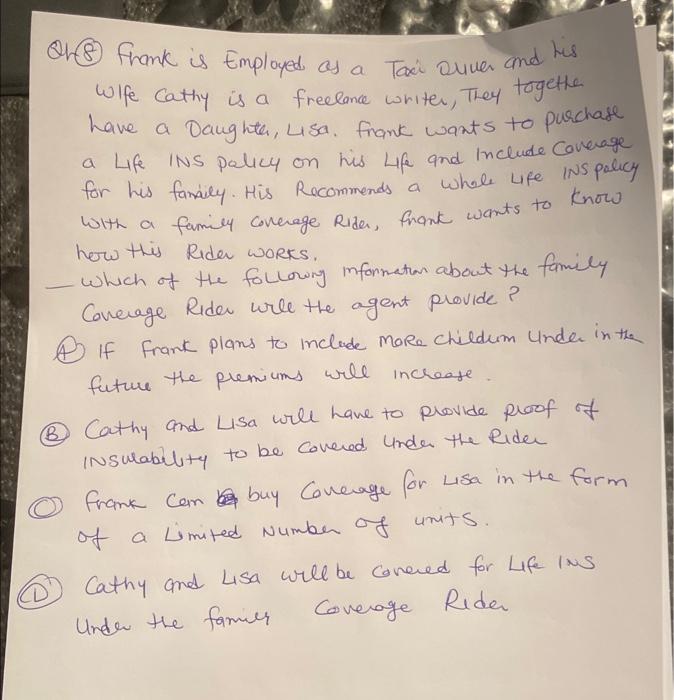 Q48 Frank is Employed as a Taxi Driver and his
wife Cathy is a freelance writer, They together
have a Daughter, Lisa. Frank wants to purchase
a Life INS policy on his Life and Include Coverage
for his family. His Recommends a whole Life INS policy
with a family coverage Rider, frank wants to know
how this Rider works.
— which of the following information about the family
Coverage Rider will the agent provide?
A If Frank plans to include more childern under in the
future the premiums will increase.
B Cathy and Lisa will have to provide proof of
INSulability to be covered under the Rider
C frank can buy Coverage for Lisa in the form
of a Limited Number of units.
D Cathy and Lisa will be covered for Life INS
Under the family Coverage Rider